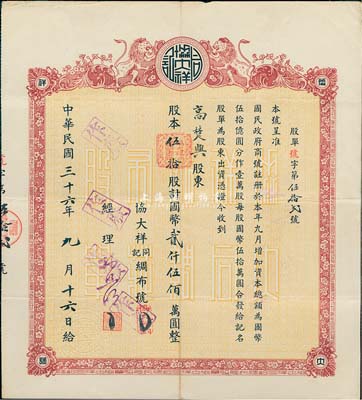 協大祥
公司
協
祥
大
號
股單號字第伍拾弍號
本號呈准
國民政府商號註册於本年九月增加資本總額為國幣
伍拾億圓分作壹萬股每股國幣伍拾萬圓合發給記名
股單為股東出資憑證今收到
高楚興股東
股本伍拾股計國幣貳仟伍佰萬圓整
協大祥同記綢布號
經理
中華民國三十六年九月十六日給